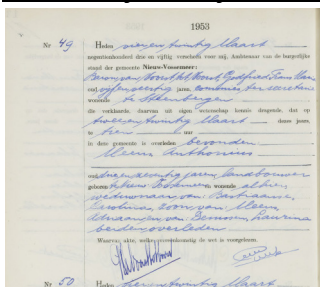 1953
Nr 49 Heden vier en twintig Maart
negentienhonderd drie en vijftig verscheen voor mij, Ambtenaar van de burgerlijke
stand der gemeente Nieuw-Vossemeer:
Baron van Voorst tot Voorst, Godfried Frans Maria
oud vijf en veertig jaren, commies ter secretarie
wonende te Steenbergen
die verklaarde, daarvan uit eigen wetenschap kennis dragende, dat op
twee en twintig Maart dezes jaars,
te tien uur
in deze gemeente is overleden bevonden
Anthonius
oud drie en zeventig jaren, landbouwer
geboren te Nieuw-Vossemeer en wonende alhier,
weduwnaar van Bastiaanse,
zoon van
en van Laurina
beiden overleden
Waarvan akte, welke overeenkomstig de wet is voorgelezen.
Nr 50 Heden vier en twintig Maart